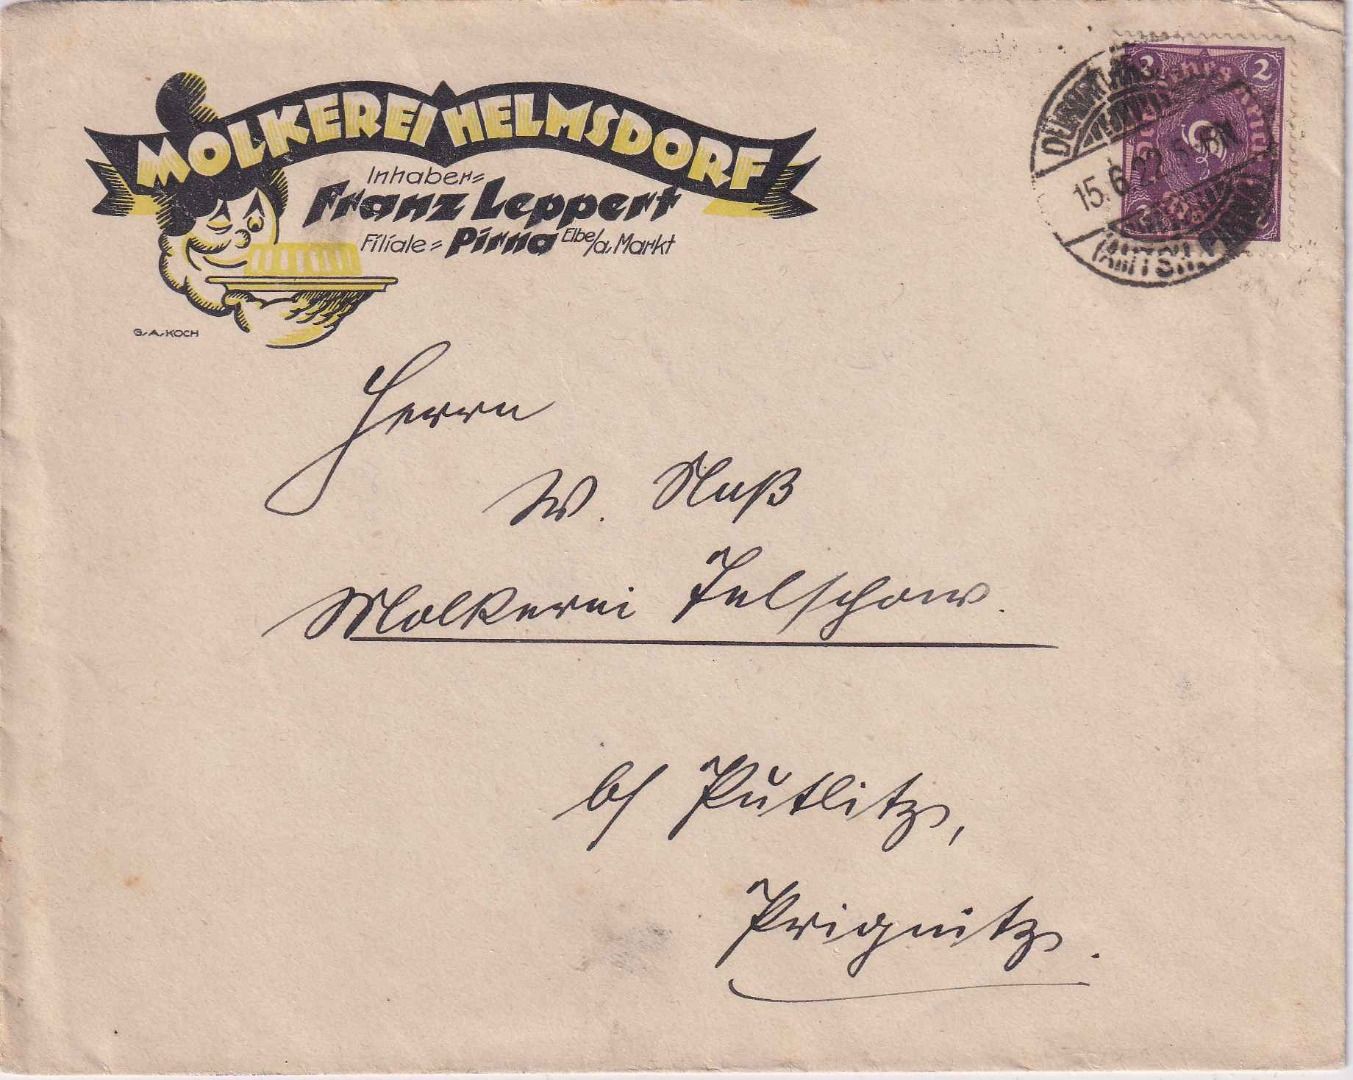 MOLKEREI HELMSDORF
Inhaber=
Franz Leppert
Filiale= Pirna Elbe/a. Markt
G.A.KOCH
2 2
Deutsches Reich
2
15.6.22
(AMTSH. PIRNA)
Herrn
W. Naß
Molkerei Telschow.
b/ Putlitz,
Prignitz.